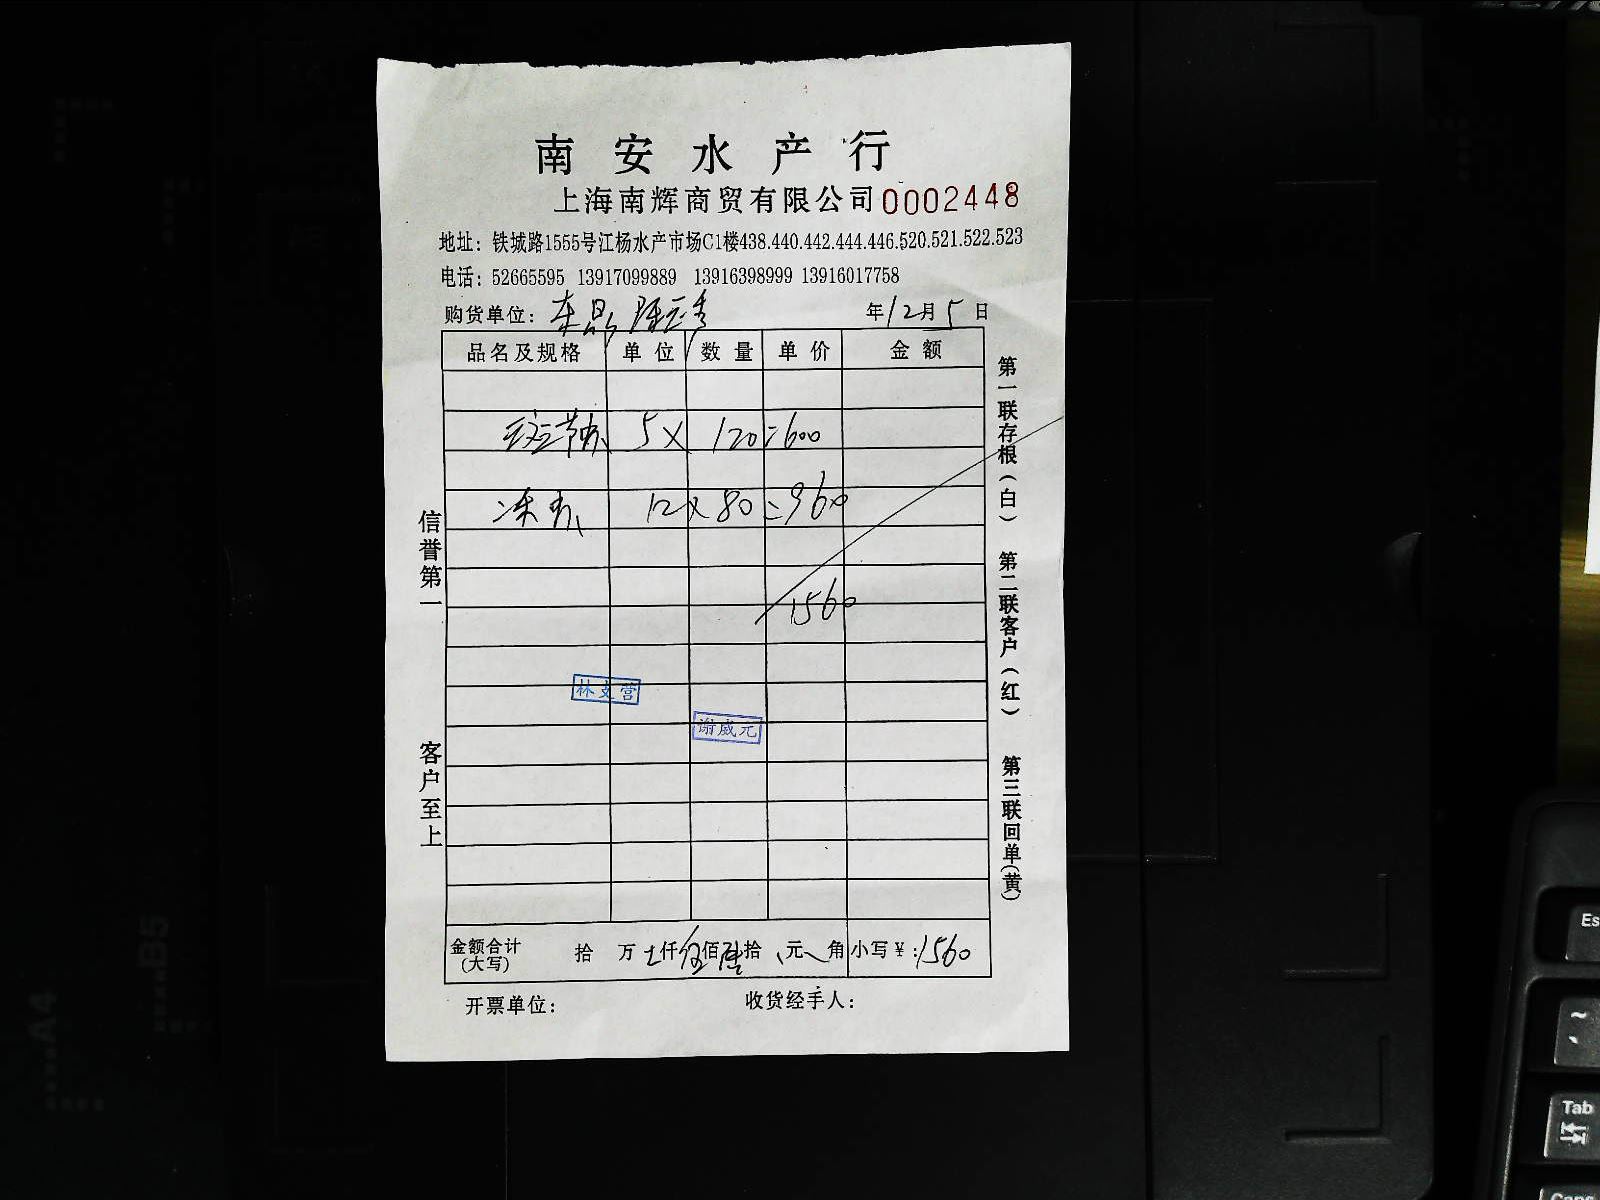 南安水产行
上海南辉商贸有限公司 0002448
地址：铁城路1555号江杨水产市场C1楼438.440.442.444.446.520.521.522.523
电话：52665595 13917099889 13916398999 13916017758
购货单位： 年12月5日
品名及规格 单位 数量 单价 金额
5 X 120=600
12 X 80=960
1560
林文营
谢威元
金额合计(大写) 拾 万 仟伍佰陆拾 元 角 小写￥:1560
开票单位： 收货经手人：
信誉第一
客户至上
第一联存根(白)
第二联客户(红)
第三联回单(黄)
Es
~
Tab
Caps
A4
B5